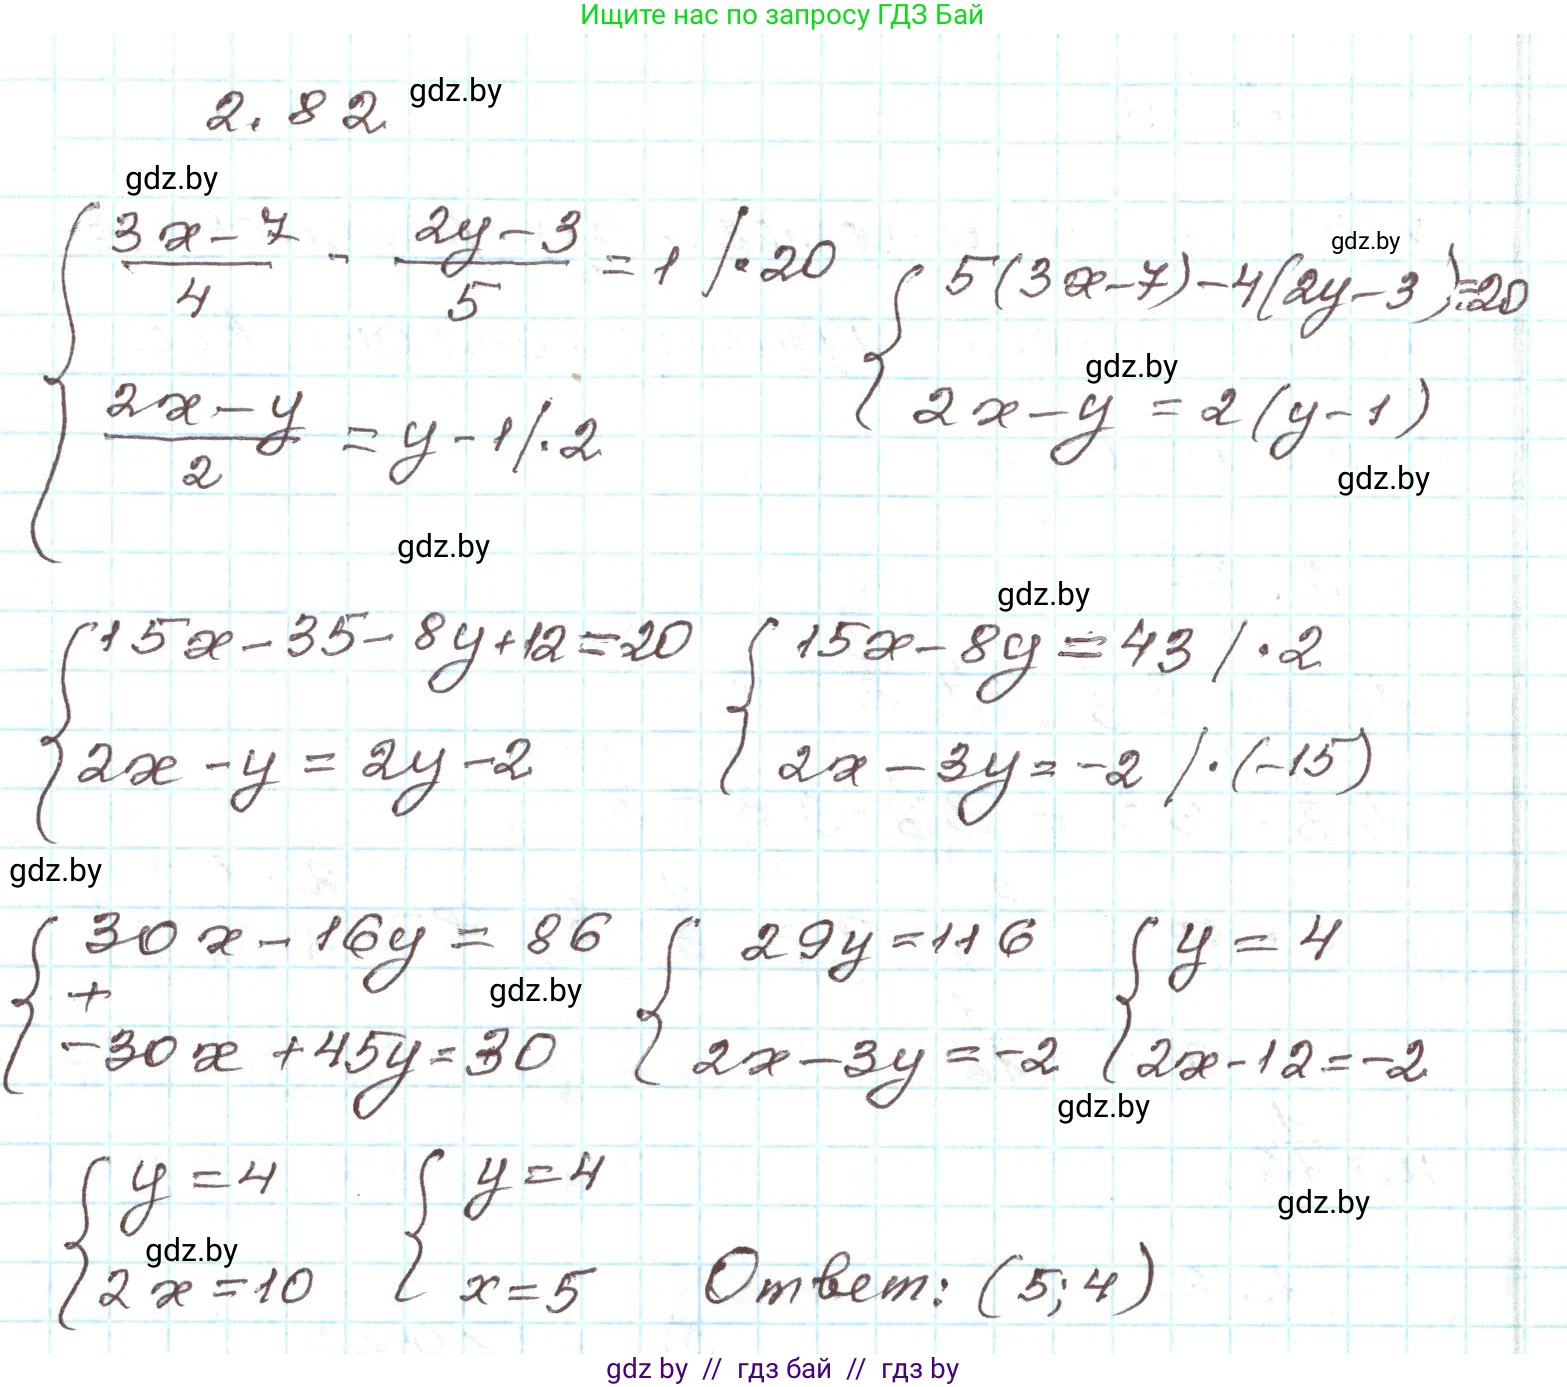 Ищите нас по запросу ГДЗ Бай
2.82 gdz.by
gdz.by
{ (3x-7)/4 - (2y-3)/5 = 1 /·20
(2x-y)/2 = y-1 /·2
gdz.by
{ 5(3x-7)-4(2y-3)=20
gdz.by
2x-y = 2(y-1)
gdz.by
gdz.by
gdz.by
{ 15x-35-8y+12=20
2x-y=2y-2
{ 15x-8y=43 /·2
2x-3y=-2 /·(-15)
gdz.by
{ 30x-16y=86
+
-30x+45y=30
gdz.by
{ 29y=116
2x-3y=-2
{ y=4
2x-12=-2
gdz.by
{ y=4
gdz.by
2x=10
{ y=4
x=5
gdz.by
Ответ: (5;4)
gdz by // гдз бай // гдз by